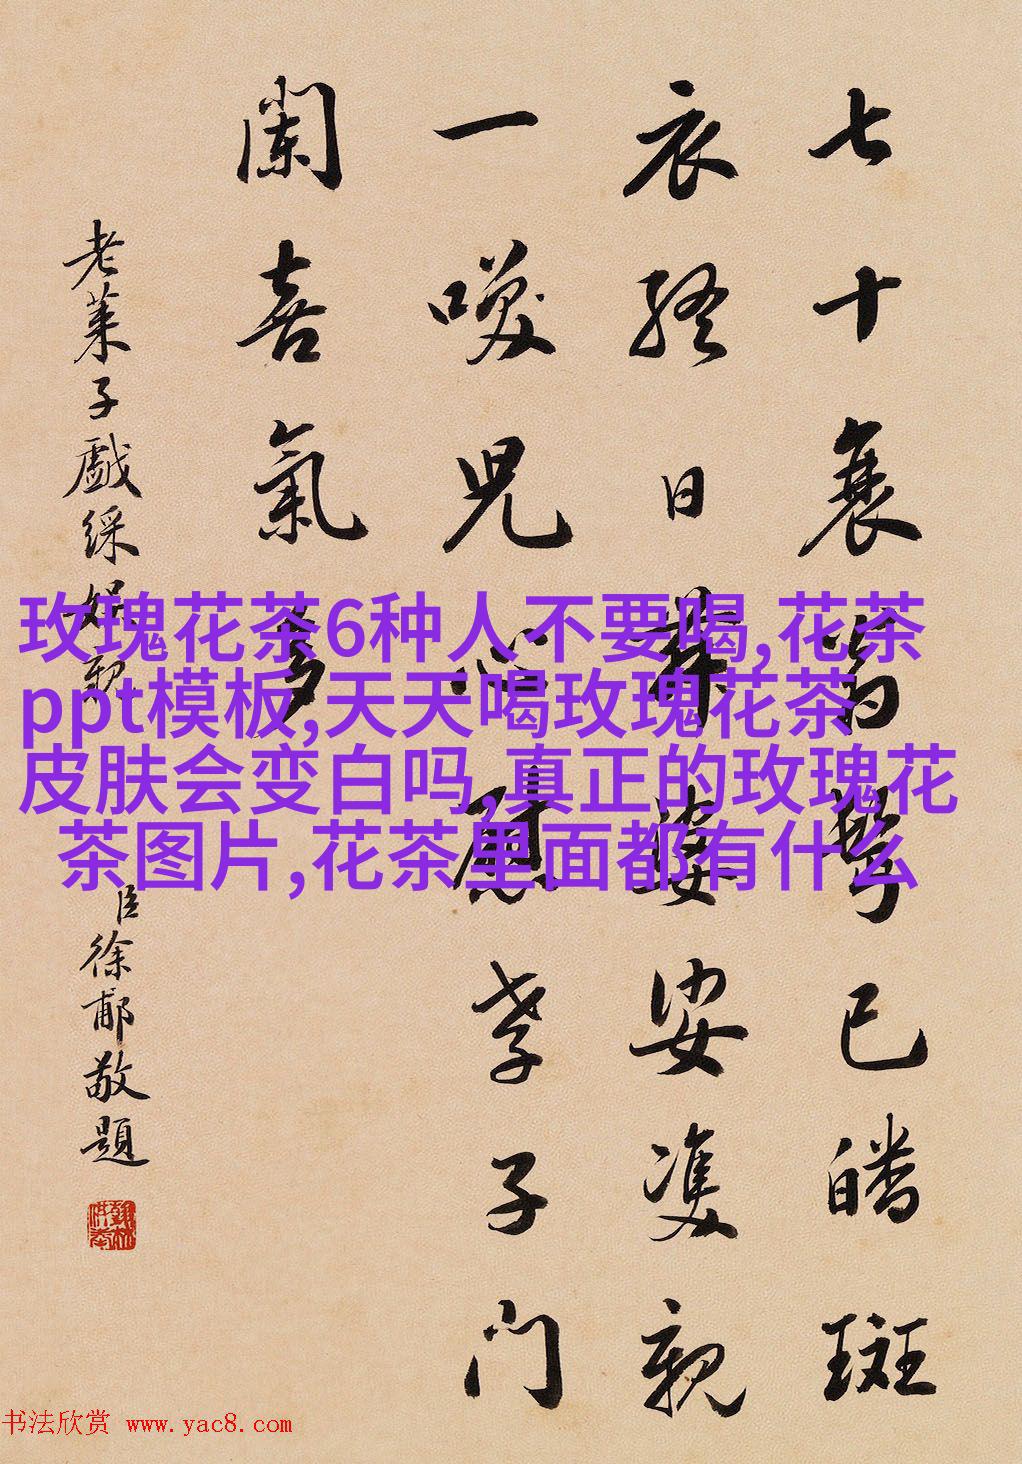 七十衰翁鬢已皤斑
衣終日舞婆娑雙親
一喚兒心慰孝子門
闌喜氣多
老萊子戲綵娛親
臣徐郙敬題
玫瑰花茶6种人不要喝,花茶
ppt模板,天天喝玫瑰花茶
皮肤会变白吗,真正的玫瑰花
茶图片,花茶里面都有什么
书法欣赏 www.yac8.com